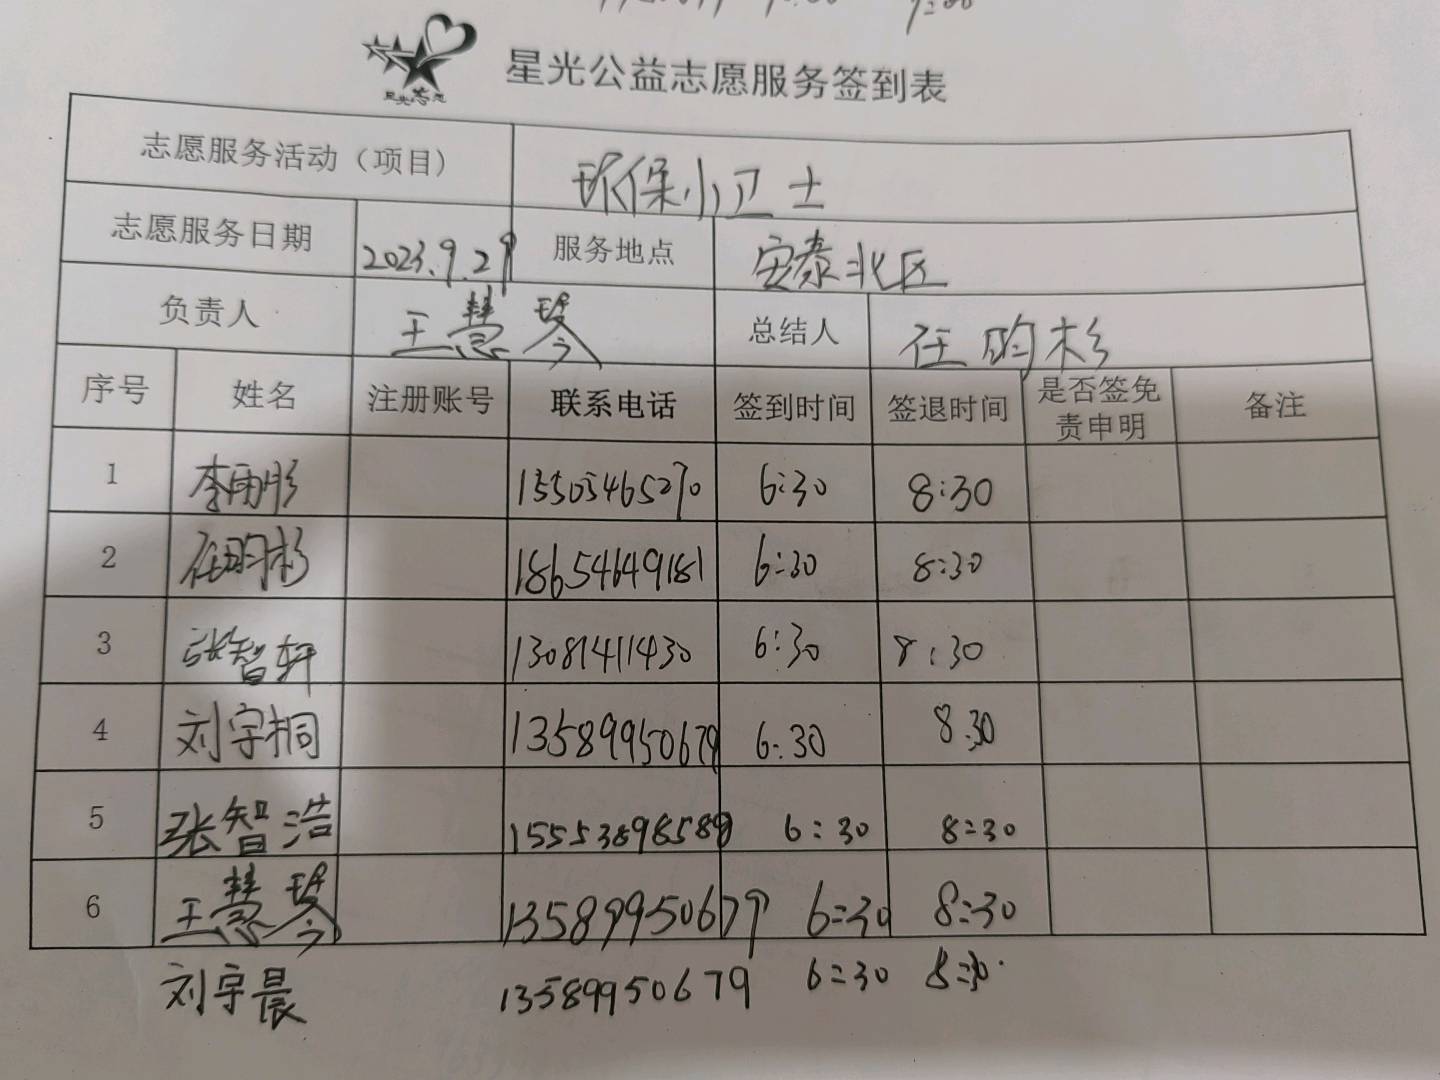 星光公益志愿服务签到表
志愿服务活动（项目） 环保小卫士
志愿服务日期 2023.9.29 服务地点 安泰北区
负责人 王慧琴 总结人 任昀杉
序号 姓名 注册账号 联系电话 签到时间 签退时间 是否签免责申明 备注
1 李雨彤 15505465270 6:30 8:30
2 任昀杉 18654649181 6:30 8:30
3 张智轩 13081411430 6:30 8:30
4 刘宇桐 13589950679 6:30 8:30
5 张智浩 15553898589 6:30 8:30
6 王慧琴 13589950679 6:30 8:30
刘宇晨 13589950679 6:30 8:30